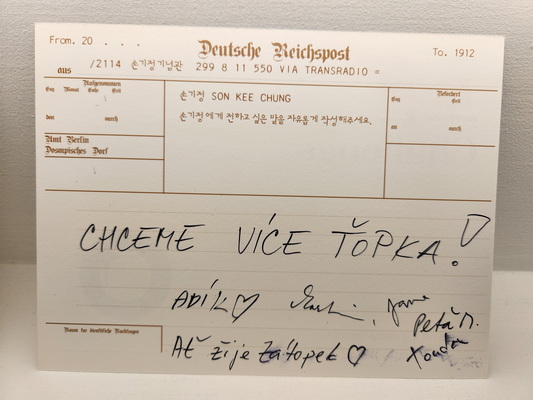 From. 20 . . .
Deutsche Reichspost
To. 1912
aus /2114 손기정기념관 299 8 11 550 VIA TRANSRADIO =
Aufgenommen
Tag Monat Jahr Zeit
den durch
Amt Berlin
손기정 SON KEE CHUNG
손기정에게 전하고 싶은 말을 자유롭게 작성해주세요.
Befördert
Tag Zeit
an durch
CHCEME VÍCE ŤOPKA!
ADÍK♡
Jana
Petr M.
Ať žije Zátopek ♡